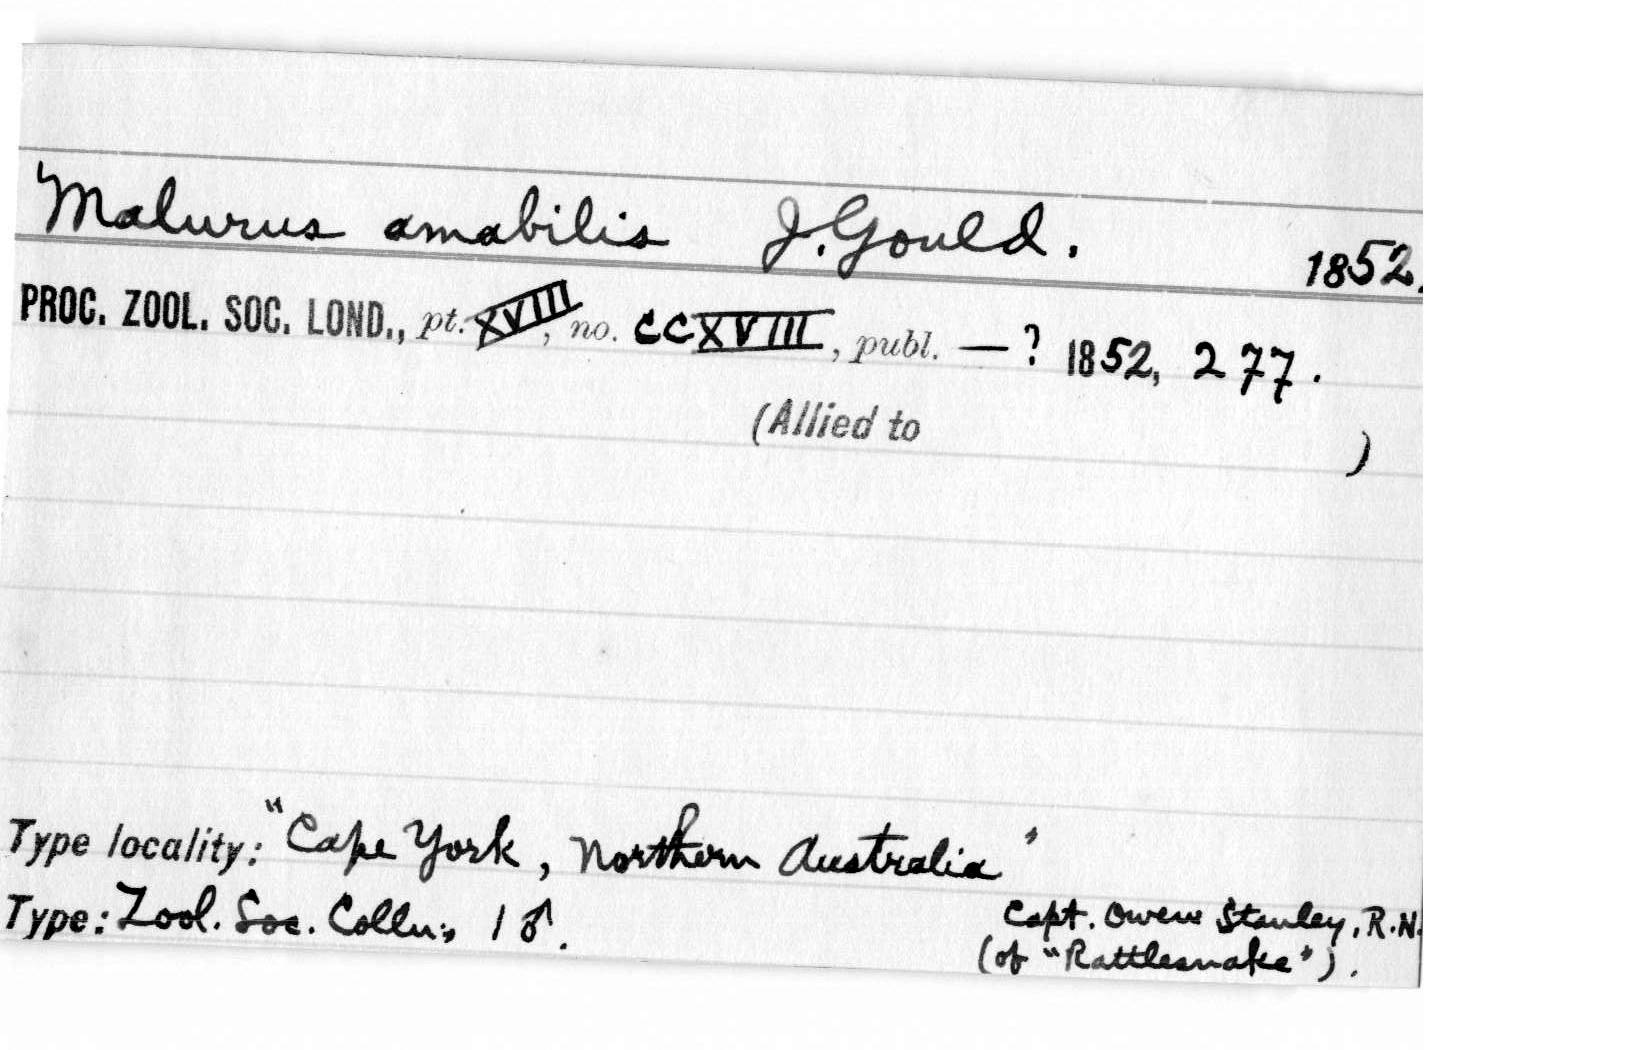 Malurus amabilis J. Gould. 1852.
PROC. ZOOL. SOC. LOND., pt. XVIII, no. CCXVIII, publ. — ? 1852, 277.
(Allied to )
Type locality: "Cape York, Northern Australia"
Type: Zool. Soc. Colln., 1 ♂. Capt. Owen Stanley, R.N.
(of "Rattlesnake").